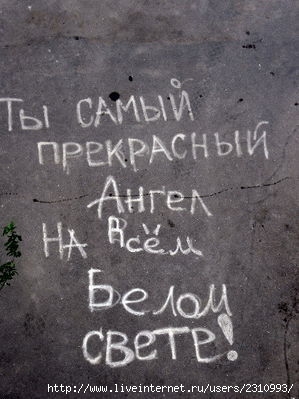 Ты самый
прекрасный
Ангел
на всём
Белом
свете!
http://www.liveinternet.ru/users/2310993/